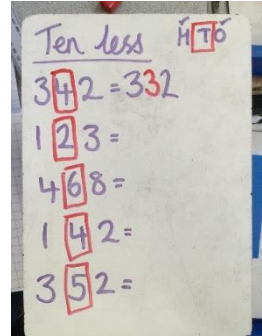 Ten less HTO
342=332
123=
468=
142=
352=